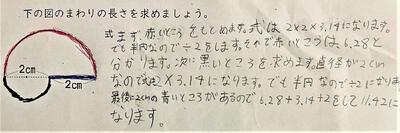 下の図のまわりの長さを求めましょう。
2cm
2cm
式 まず、赤いところをもとめます。式は2×2×3.14になります。
でも半円なので÷2をします。そので赤いところは6.28と
分かります。次に黒いところを求めます。直径が2cm
なので式は2×3.14になります。でも半円なので÷2になります
最後に2cmの青いところがあるので6.28+3.14+2をして11.42に
なります。